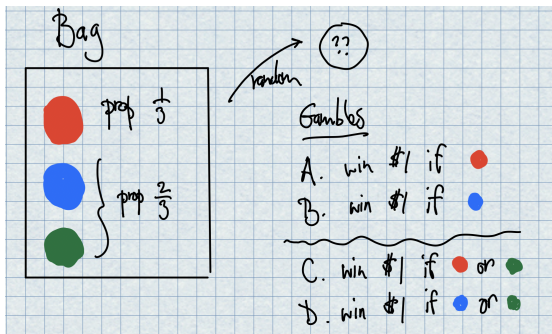 Bag
??
random
prop 1/3
prop 2/3
Gambles
A. win $1 if
B. win $1 if
C. win $1 if or
D. win $1 if or